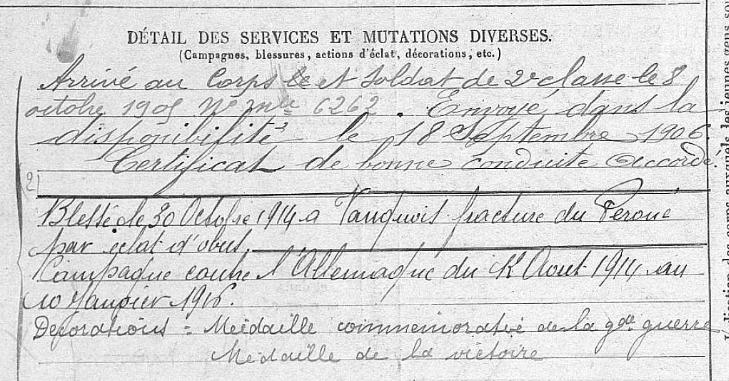 DÉTAIL DES SERVICES ET MUTATIONS DIVERSES.
(Campagnes, blessures, actions d'éclat, décorations, etc.)
Arrivé au Corps le et Soldat de 2e classe le 8
octobre 1905 No mle 6262. Envoyé dans la
disponibilité le 18 Septembre 1906.
Certificat de bonne conduite accordé.
2)
Blessé le 30 Octobre 1914 a Vauquois fracture du Peroné
par éclat d'obus.
Campagne contre l'Allemagne du Août 1914 au
10 Janvier 1916.
Decorations = Médaille commemorative de la gde guerre
Médaille de la victoire